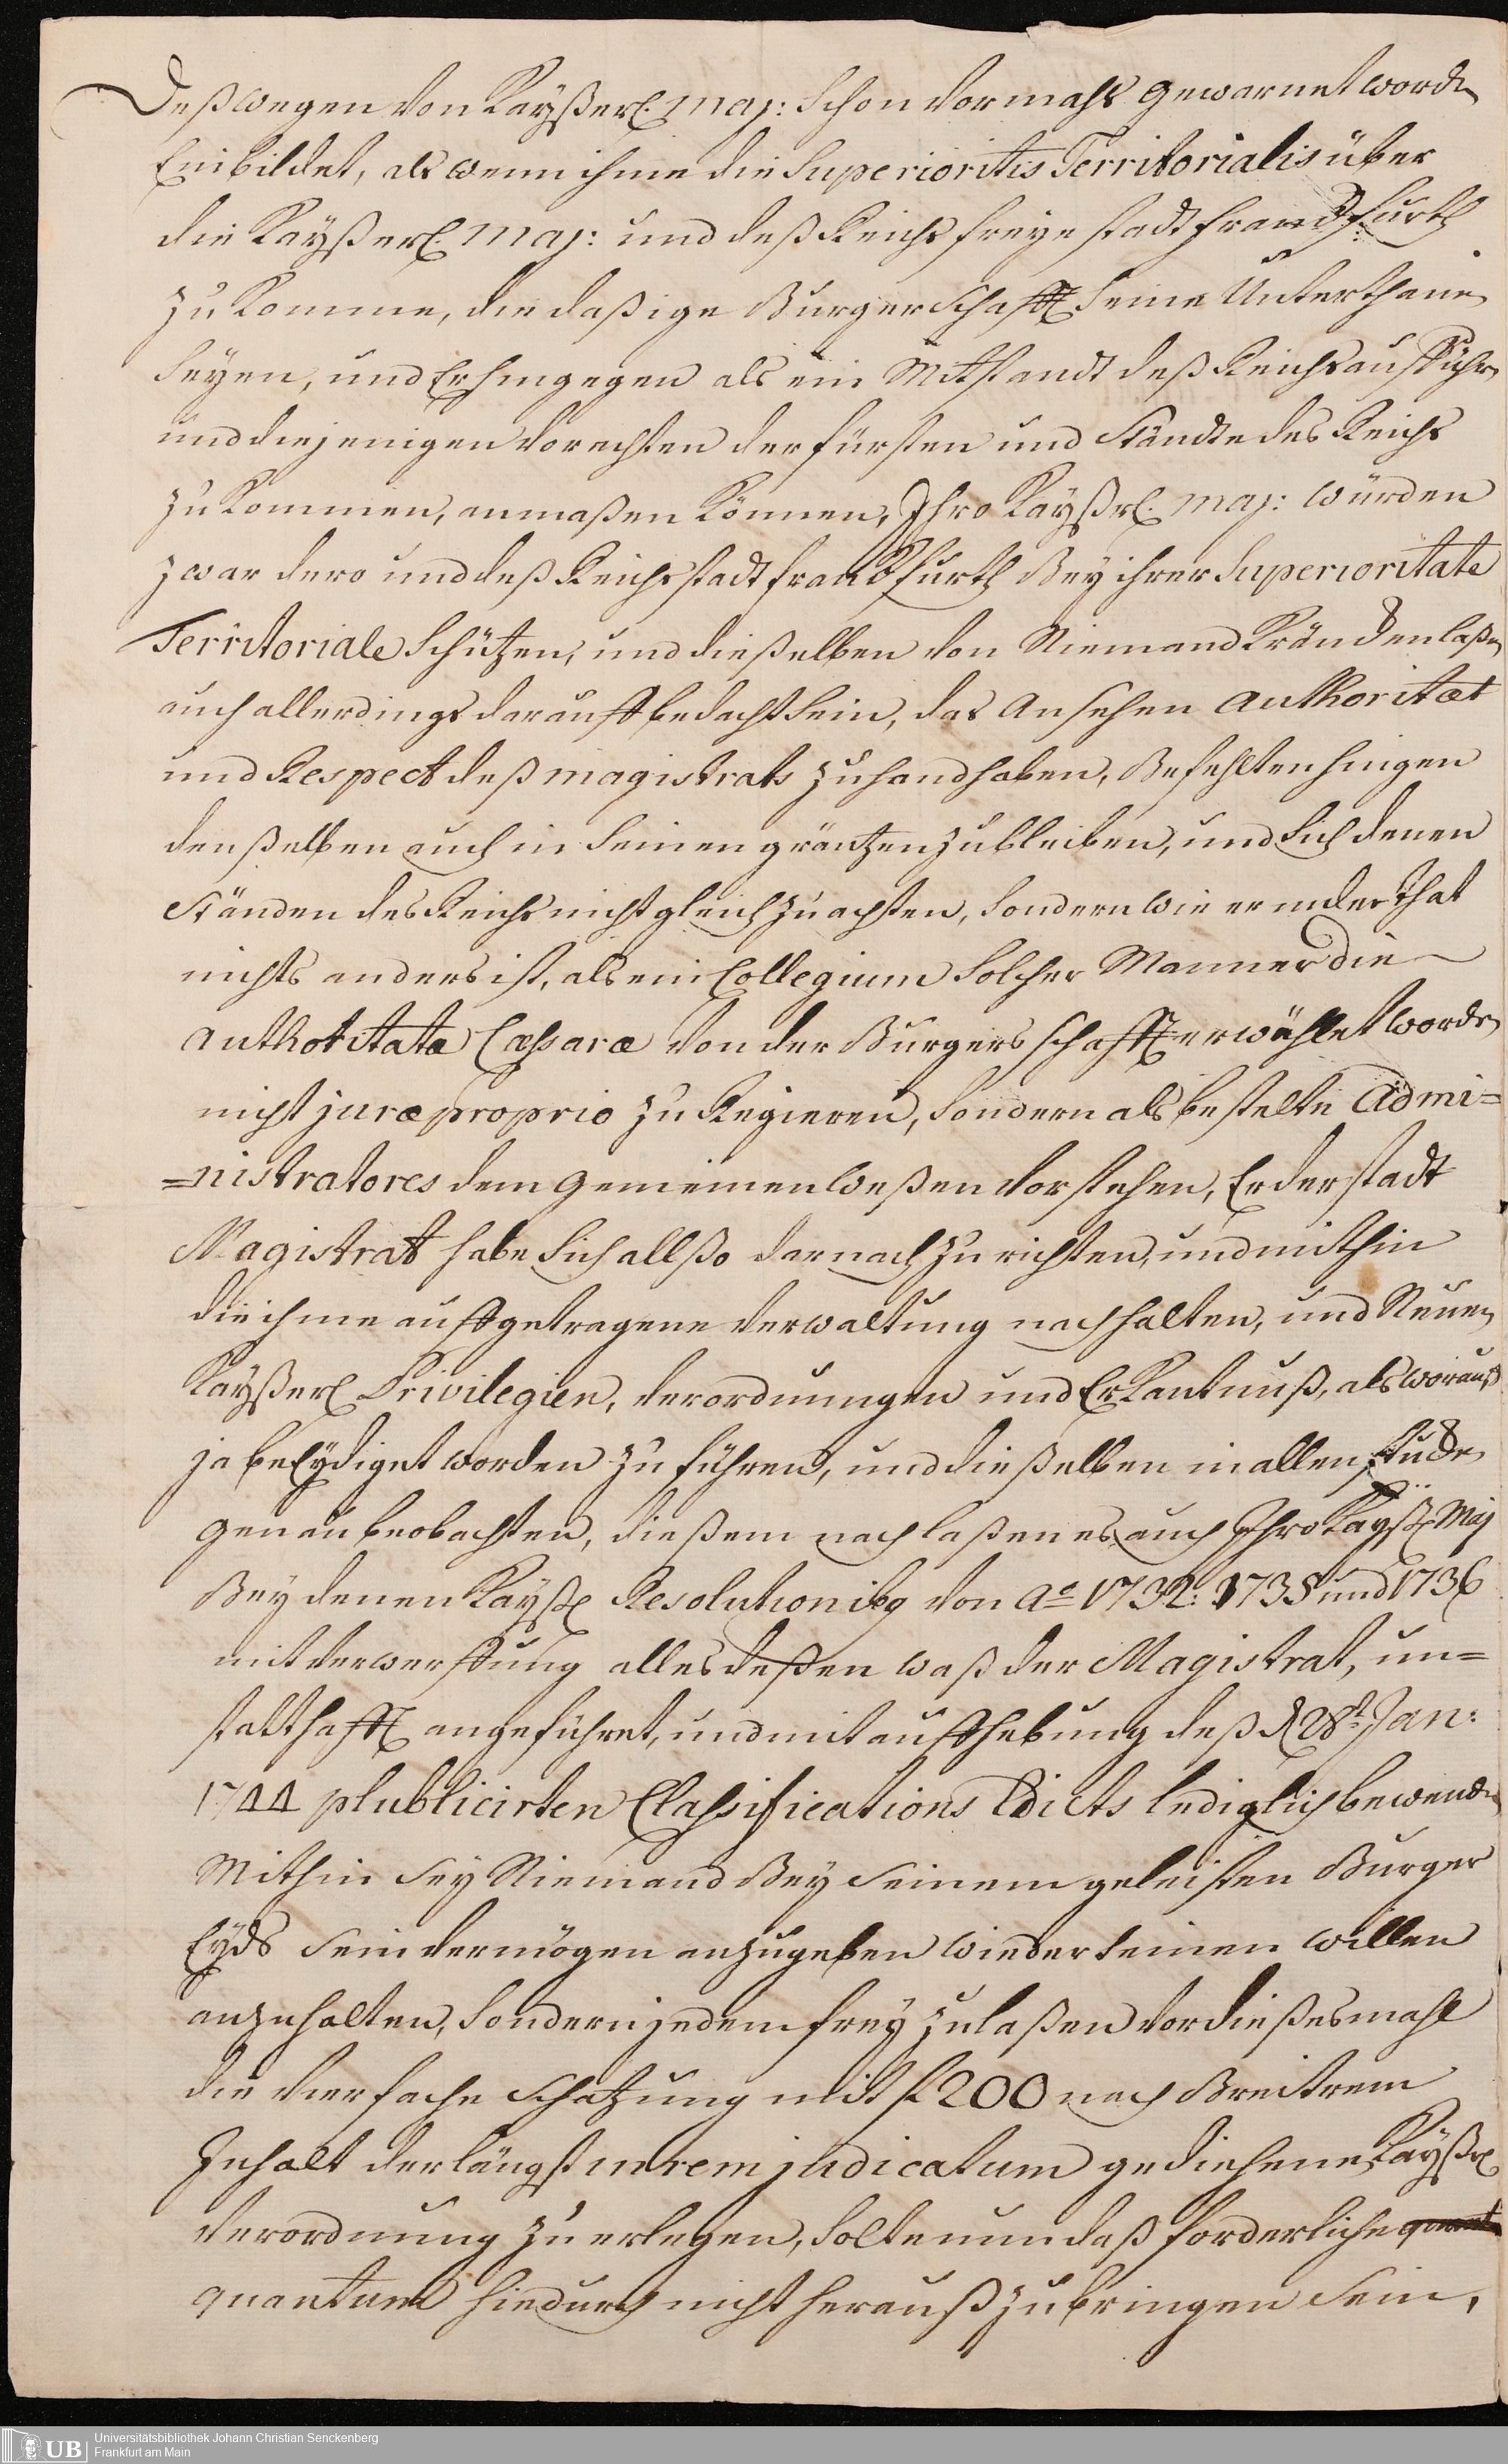 Deßwegen von Kayßerl. Maj: Schon vormahls gewarnet worden
Einbildet, als wenn ihme die Superioritis Territorialis über
die Kayßerl. Maj: und deß Reichs freye stadt franckfurth
zu Komme, die daßige Burgerschafft Seine Unterthanen
Seyen, und Er hingegen als ein Mitstandt deß Reichs aufführen
und diejenigen vorechten der fürsten und Ständte des Reichs
zu Kommen, anmaßen Können, Ihro Kayßrl. Maj: würden
zwar dero und deß Reichs stadt franckfurth Bey ihrer Superioritate
Territoriale Schützen, und dießelben von Niemand Kräncken laßen
auch allerdings darauff bedacht sein, das Ansehen Authoritæt
und Respect deß magistrats zu handhaben, Befehlten hingen
denßelben auch in Seinen gräntzen zu bleiben, und Sich denen
Ständen des Reichs nicht gleich zu achten, Sondern wie er in der That
nichts anders ist, als ein Collegium Solcher Manner die
Authotitatæ Cæsaræ von der Burgersschafft erwählet worden
nicht juræ proprio zu Regieren, Sondern als bestelte Admi=
=nistratores dem gemeinen Weßen vorstehen, Er der stadt
Magistrat habe Sich allßo darnach zu richten, und mithin
die ihme auffgetragene Verwaltung nachhalten, und Neuen
Kayßerl Privilegien, verordnungen und Erkantnuß, als worauff
ja beeydiget worden zu führen, und dießelben in allen stucken
genau beobachten, dießem nach laßen es auch Ihro Kayßl Maj
Bey denen Kayßl Resolutionibg von Ao 1732: 1735 und 1736
mit verwerffung alles deßen waß der Magistrat, un=
statthafft angeführet, und mit auffhebung deß d 28t Jan:
1744 plublicirten Classifications Edicts lediglich bewenden
Mithin Sey Niemand Bey Seinem geleisten Burger
Eyds Sein vermögen anzugeben wieder seinen willen
anzuhalten, Sondern jedem frey zulaßen vor dießesmahl
die vierfache Schatzung mit f 200 nach Breitrem
Inhalt der längst in rem judicatum gediehene Kayßl
verordnung zu erlegen, Solte nun daß forderliche quant
quantum hiedurch nicht herauß zu bringen Sein,
Universitätsbibliothek Johann Christian Senckenberg
Frankfurt am Main
UB